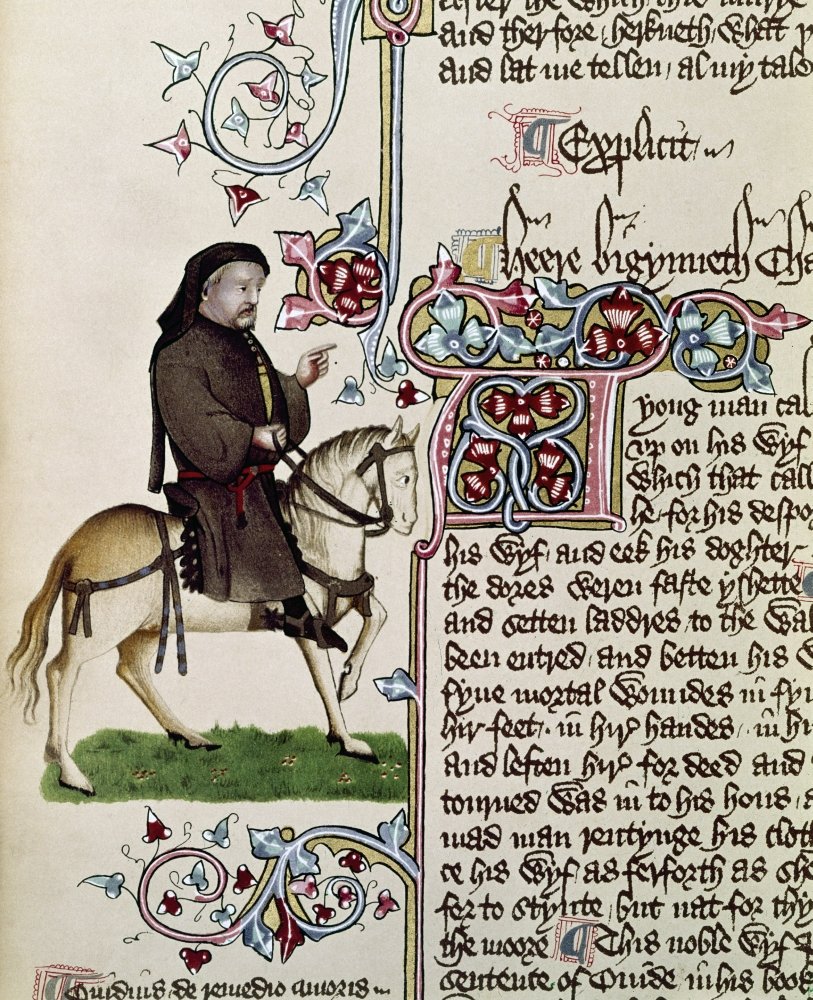 after the which this murye
and therfore / herkneth / what y
and lat me tellen / al my tale
Explicit
Heere bigynneth Cha
A yong man cal
vp on his wyf
which that call
he / for his despo
his wyf / and eek his doghter
the dores weren faste yshette
and setten laddres / to the wal
been entred / and betten his w
fyue mortal woundes in fyu
hir feet / in hir handes / in hi
and leften hir for deed and
tourned was in to his hous / a
mad man rentynge his cloth
ce his wyf / as ferforth as she
for to stynte / but nat for thy
the moore This noble wyf P
sentence of Ouide / in his book
Ouidius de remedio amoris